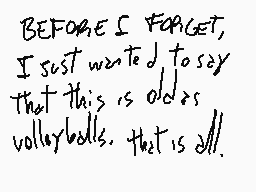 BEFORE I FORGET,
I just wanted to say
that this is old as
volleyballs. that is all.